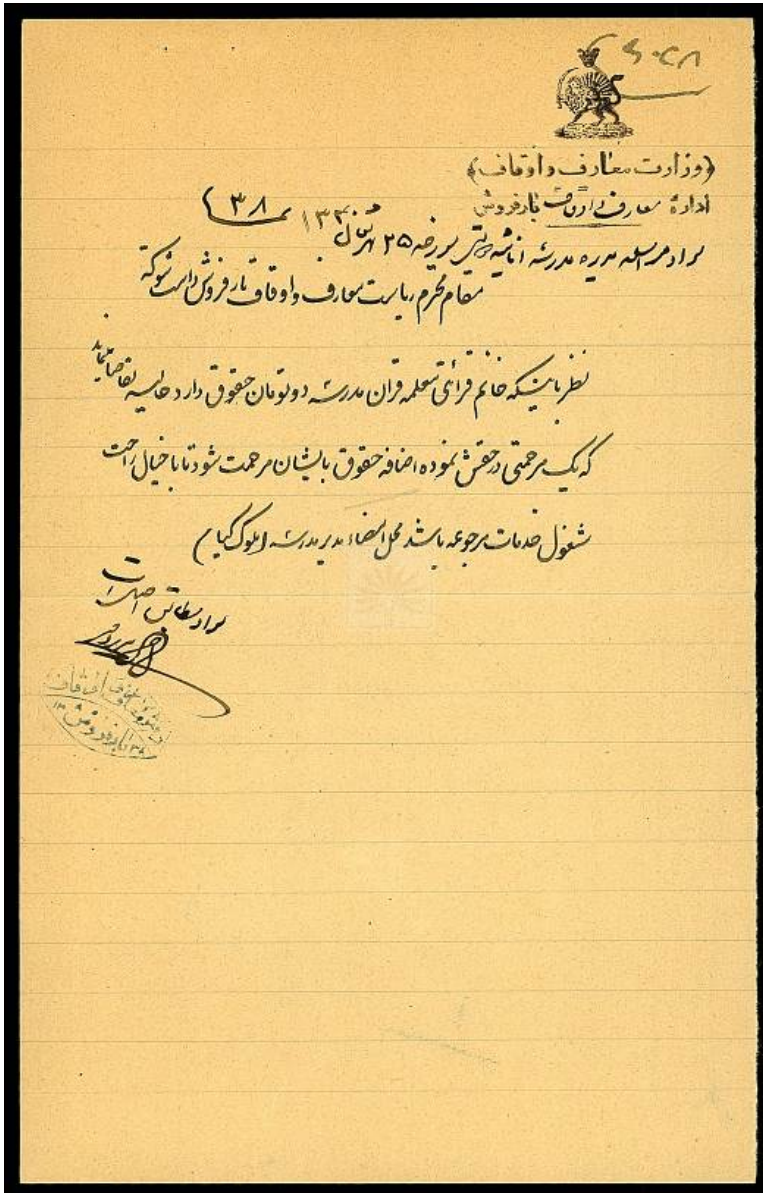 ۶۰۲۸
﴿وزارت معارف و اوقاف﴾
ادارهٔ معارف و اوقاف بارفروش
سواد مراسله مدیره مدرسه اناثیه مورخه ۲۵ ۱۳۰ نمره ۳۸
مقام محترم ریاست معارف و اوقاف بارفروش دامت شوکته
نظر باینکه خانم قرائتی معلمه قرآن مدرسه دو تومان حقوق دارد حالیه تقاضا مینماید
که یک مرحمتی در حقش نموده اضافه حقوق بایشان مرحمت شود تا با خیال راحت
مشغول خدمات مرجوعه باشد محل امضاء مدیر مدرسه
سواد مطابق اصل است
بارفروش